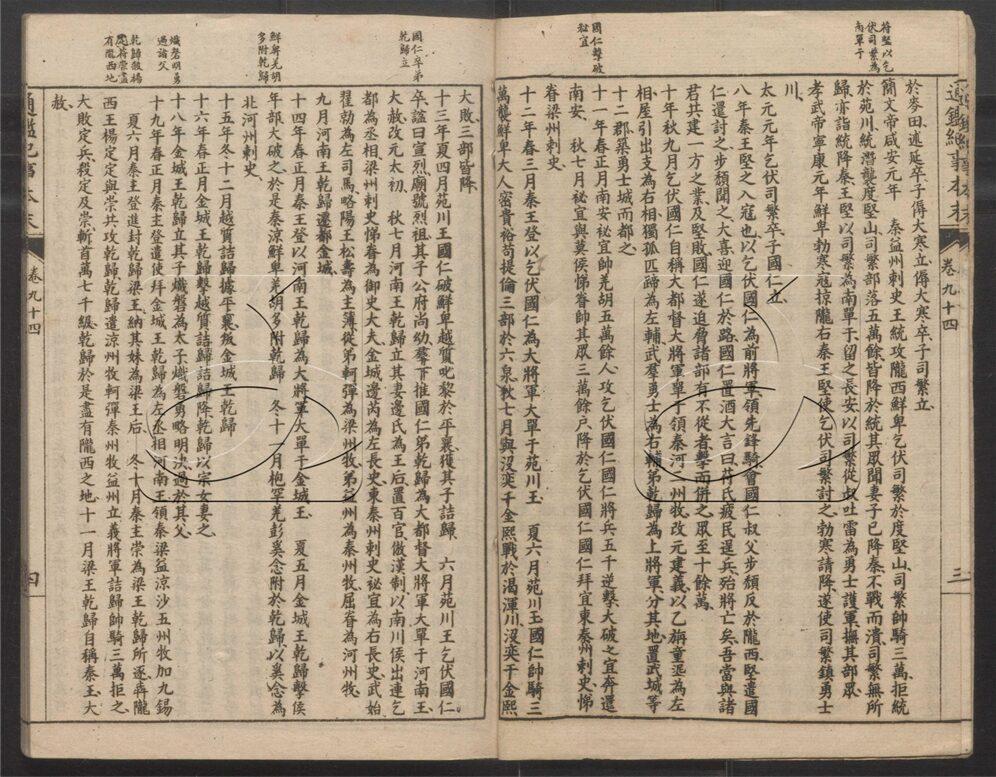 苻堅以乞
伏司繁為
南單于
國仁擊破
祕宜
通鑑紀事本末
卷九十四
三
於麥田述延卒子傉大寒立傉大寒卒子司繁立
簡文帝咸安元年 秦益州刺史王統攻隴西鮮卑乞伏司繁於度堅山司繁帥騎三萬拒統
於苑川統潛襲度堅山司繁部落五萬餘皆降於統其眾聞妻子已降秦不戰而潰司繁無所
歸亦詣統降秦王堅以司繁為南單于留之長安以司繁從叔吐雷為勇士護軍撫其部眾
孝武帝寧康元年鮮卑勃寒寇掠隴右秦王堅使乞伏司繁討之勃寒請降遂使司繁鎮勇士
川
太元元年乞伏司繁卒子國仁立
八年秦王堅之入寇也以乞伏國仁為前將軍領先鋒騎會國仁叔父步頹反於隴西堅遣國
仁還討之步頹聞之大喜迎國仁於路國仁置酒大言曰苻氏疲民逞兵殆將亡矣吾當與諸
君共建一方之業及堅敗國仁遂迫脅諸部有不從者擊而併之眾至十餘萬
十年秋九月乞伏國仁自稱大都督大將軍單于領秦河二州牧改元建義以乙旃童埿為左
相屋引出支為右相獨孤匹蹄為左輔武羣勇士為右輔弟乾歸為上將軍分其地置武城等
十二郡築勇士城而都之
十一年春正月南安祕宜帥羌胡五萬餘人攻乞伏國仁國仁將兵五千逆擊大破之宜奔還
南安 秋七月祕宜與莫侯悌眷帥其眾三萬餘戶降於乞伏國仁國仁拜宜東秦州刺史悌
眷梁州刺史
十二年春三月秦王登以乞伏國仁為大將軍大單于苑川王 夏六月苑川王國仁帥騎三
萬襲鮮卑大人密貴裕苟提倫三部於六泉秋七月與沒奕千金熙戰於渴渾川沒奕千金熙
國仁卒弟
乾歸立
鮮卑羌胡
多附乾歸
熾磐明勇
過諸父
乾歸殺楊
定苻崇盡
有隴西地
大敗三部皆降
十三年夏四月苑川王國仁破鮮卑越質叱黎於平襄獲其子詰歸 六月苑川王乞伏國仁
卒諡曰宣烈廟號烈祖其子公府尚幼羣下推國仁弟乾歸為大都督大將軍大單于河南王
大赦改元太初 秋七月河南王乾歸立其妻邊氏為王后置百官倣漢制以南川侯出連乞
都為丞相梁州刺史悌眷為御史大夫金城邊芮為左長史東秦州刺史祕宜為右長史武始
翟勍為左司馬略陽王松壽為主簿從弟軻彈為梁州牧弟益州為秦州牧屈眷為河州牧
九月河南王乾歸遷都金城
十四年春正月秦王登以河南王乾歸為大將軍大單于金城王 夏五月金城王乾歸擊侯
年部大破之於是秦涼鮮卑羌胡多附乾歸 冬十一月枹罕羌彭奚念附於乾歸以奚念為
北河州刺史
十五年冬十二月越質詰歸據平襄叛金城王乾歸
十六年春正月金城王乾歸擊越質詰歸詰歸降乾歸以宗女妻之
十八年金城王乾歸立其子熾磐為太子熾磐勇略明決過於其父
十九年春正月秦主登遣使拜金城王乾歸為左丞相河南王領秦梁益涼沙五州牧加九錫
夏六月秦主登進封乾歸梁王納其妹為梁王后 冬十月秦主崇為梁王乾歸所逐奔隴
西王楊定定與崇共攻乾歸乾歸遣涼州牧軻彈秦州牧益州立義將軍詰歸帥騎三萬拒之
大敗定兵殺定及崇斬首萬七千級乾歸於是盡有隴西之地十一月梁王乾歸自稱秦王大
赦
通鑑紀事本末
卷九十四
四